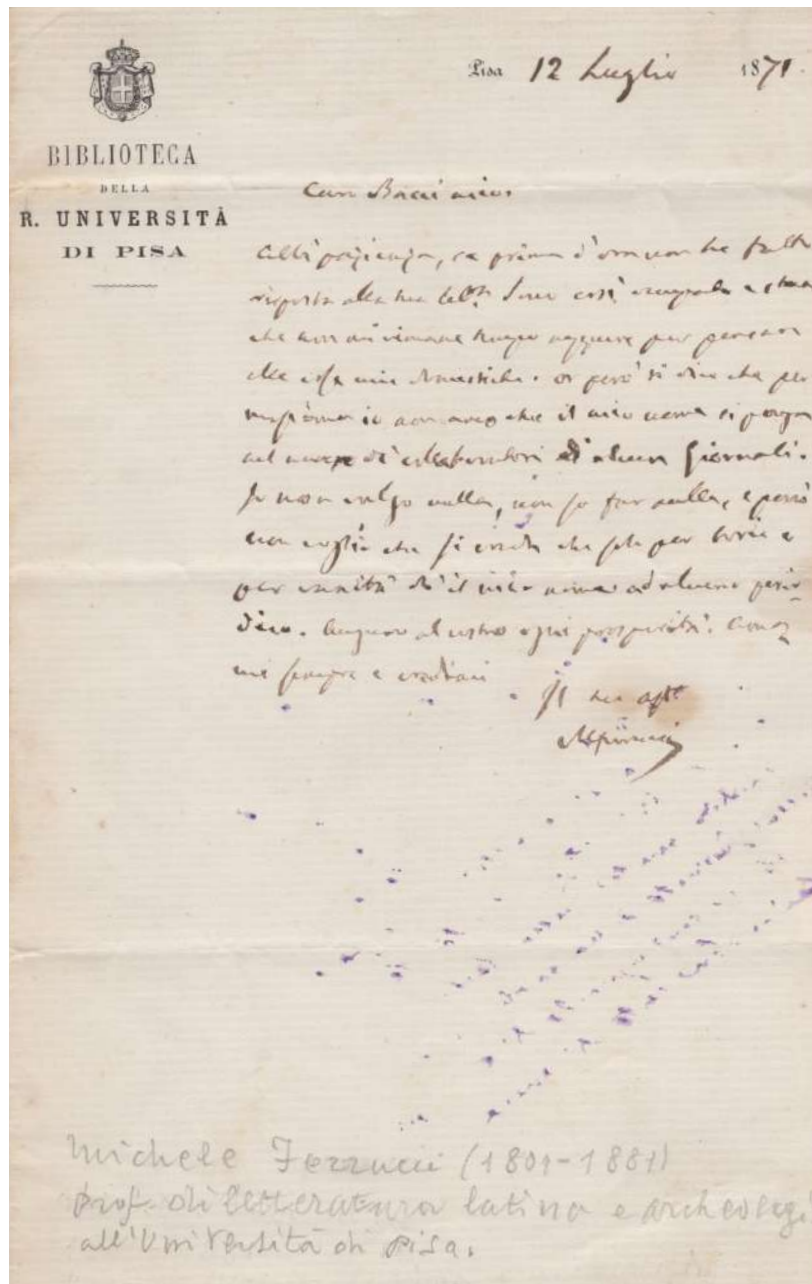 Pisa 12 Luglio 1871.
BIBLIOTECA
DELLA
R. UNIVERSITÀ
DI PISA
Caro Bacci mio,
Abbi pazienza, se prima d'ora non ho fatto
risposta alla tua Sono così occupato e
che non mi rimane tempo neppure per pensare
alle cose mie domestiche. or però ti dico che per
massima io non amo che il mio nome si ponga
nel di collaboratori di alcun Giornali.
Io non valgo nulla, non so far nulla, e perciò
non voglio che si creda che solo per boria e
per vanità dò il mio nome ad alcuno perio-
dico. Auguro al vostro ogni prosperità. Ama-
mi sempre e credimi
Il tuo affº
MFerrucci
Michele Ferrucci (1801-1881)
prof. di letteratura latina e archeologi
all'Università di Pisa.